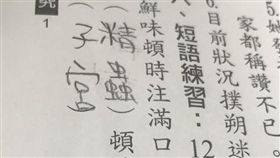 5.她
家都稱讚不已。
6.目前狀況撲朔迷
、短語練習：12
鮮味頓時注滿口
(精蟲) 頓
(子宮)
究
1